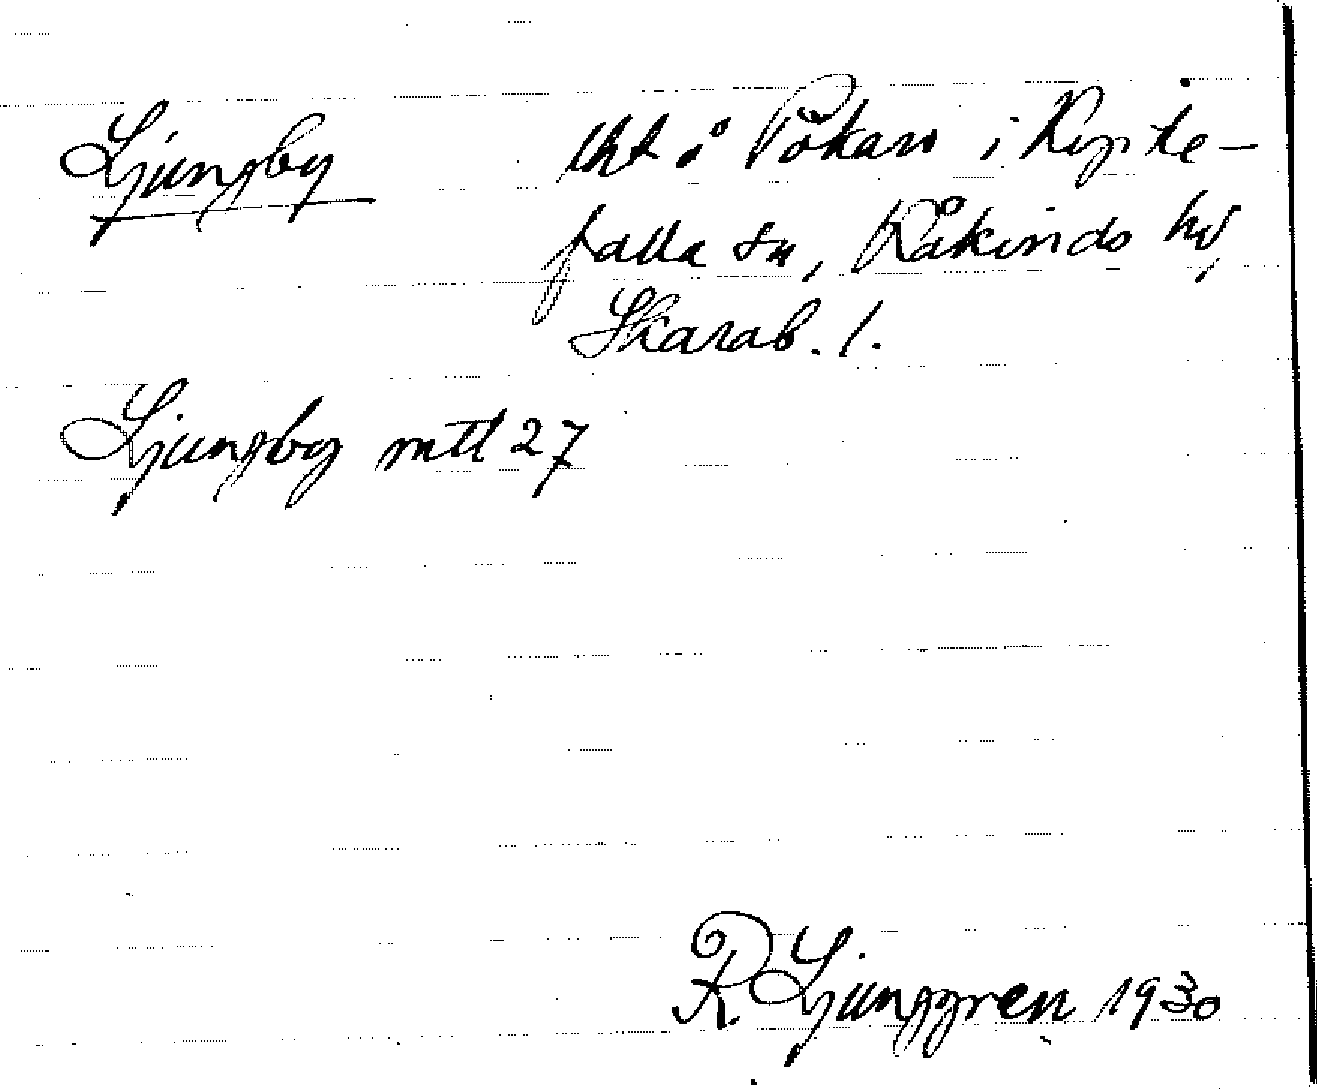 Ljungby
tht å Pökan i Rypte-
falla sn, Kåkinds hd
Skarab. l.
Ljungby mtl 27
R Ljunggren 1930